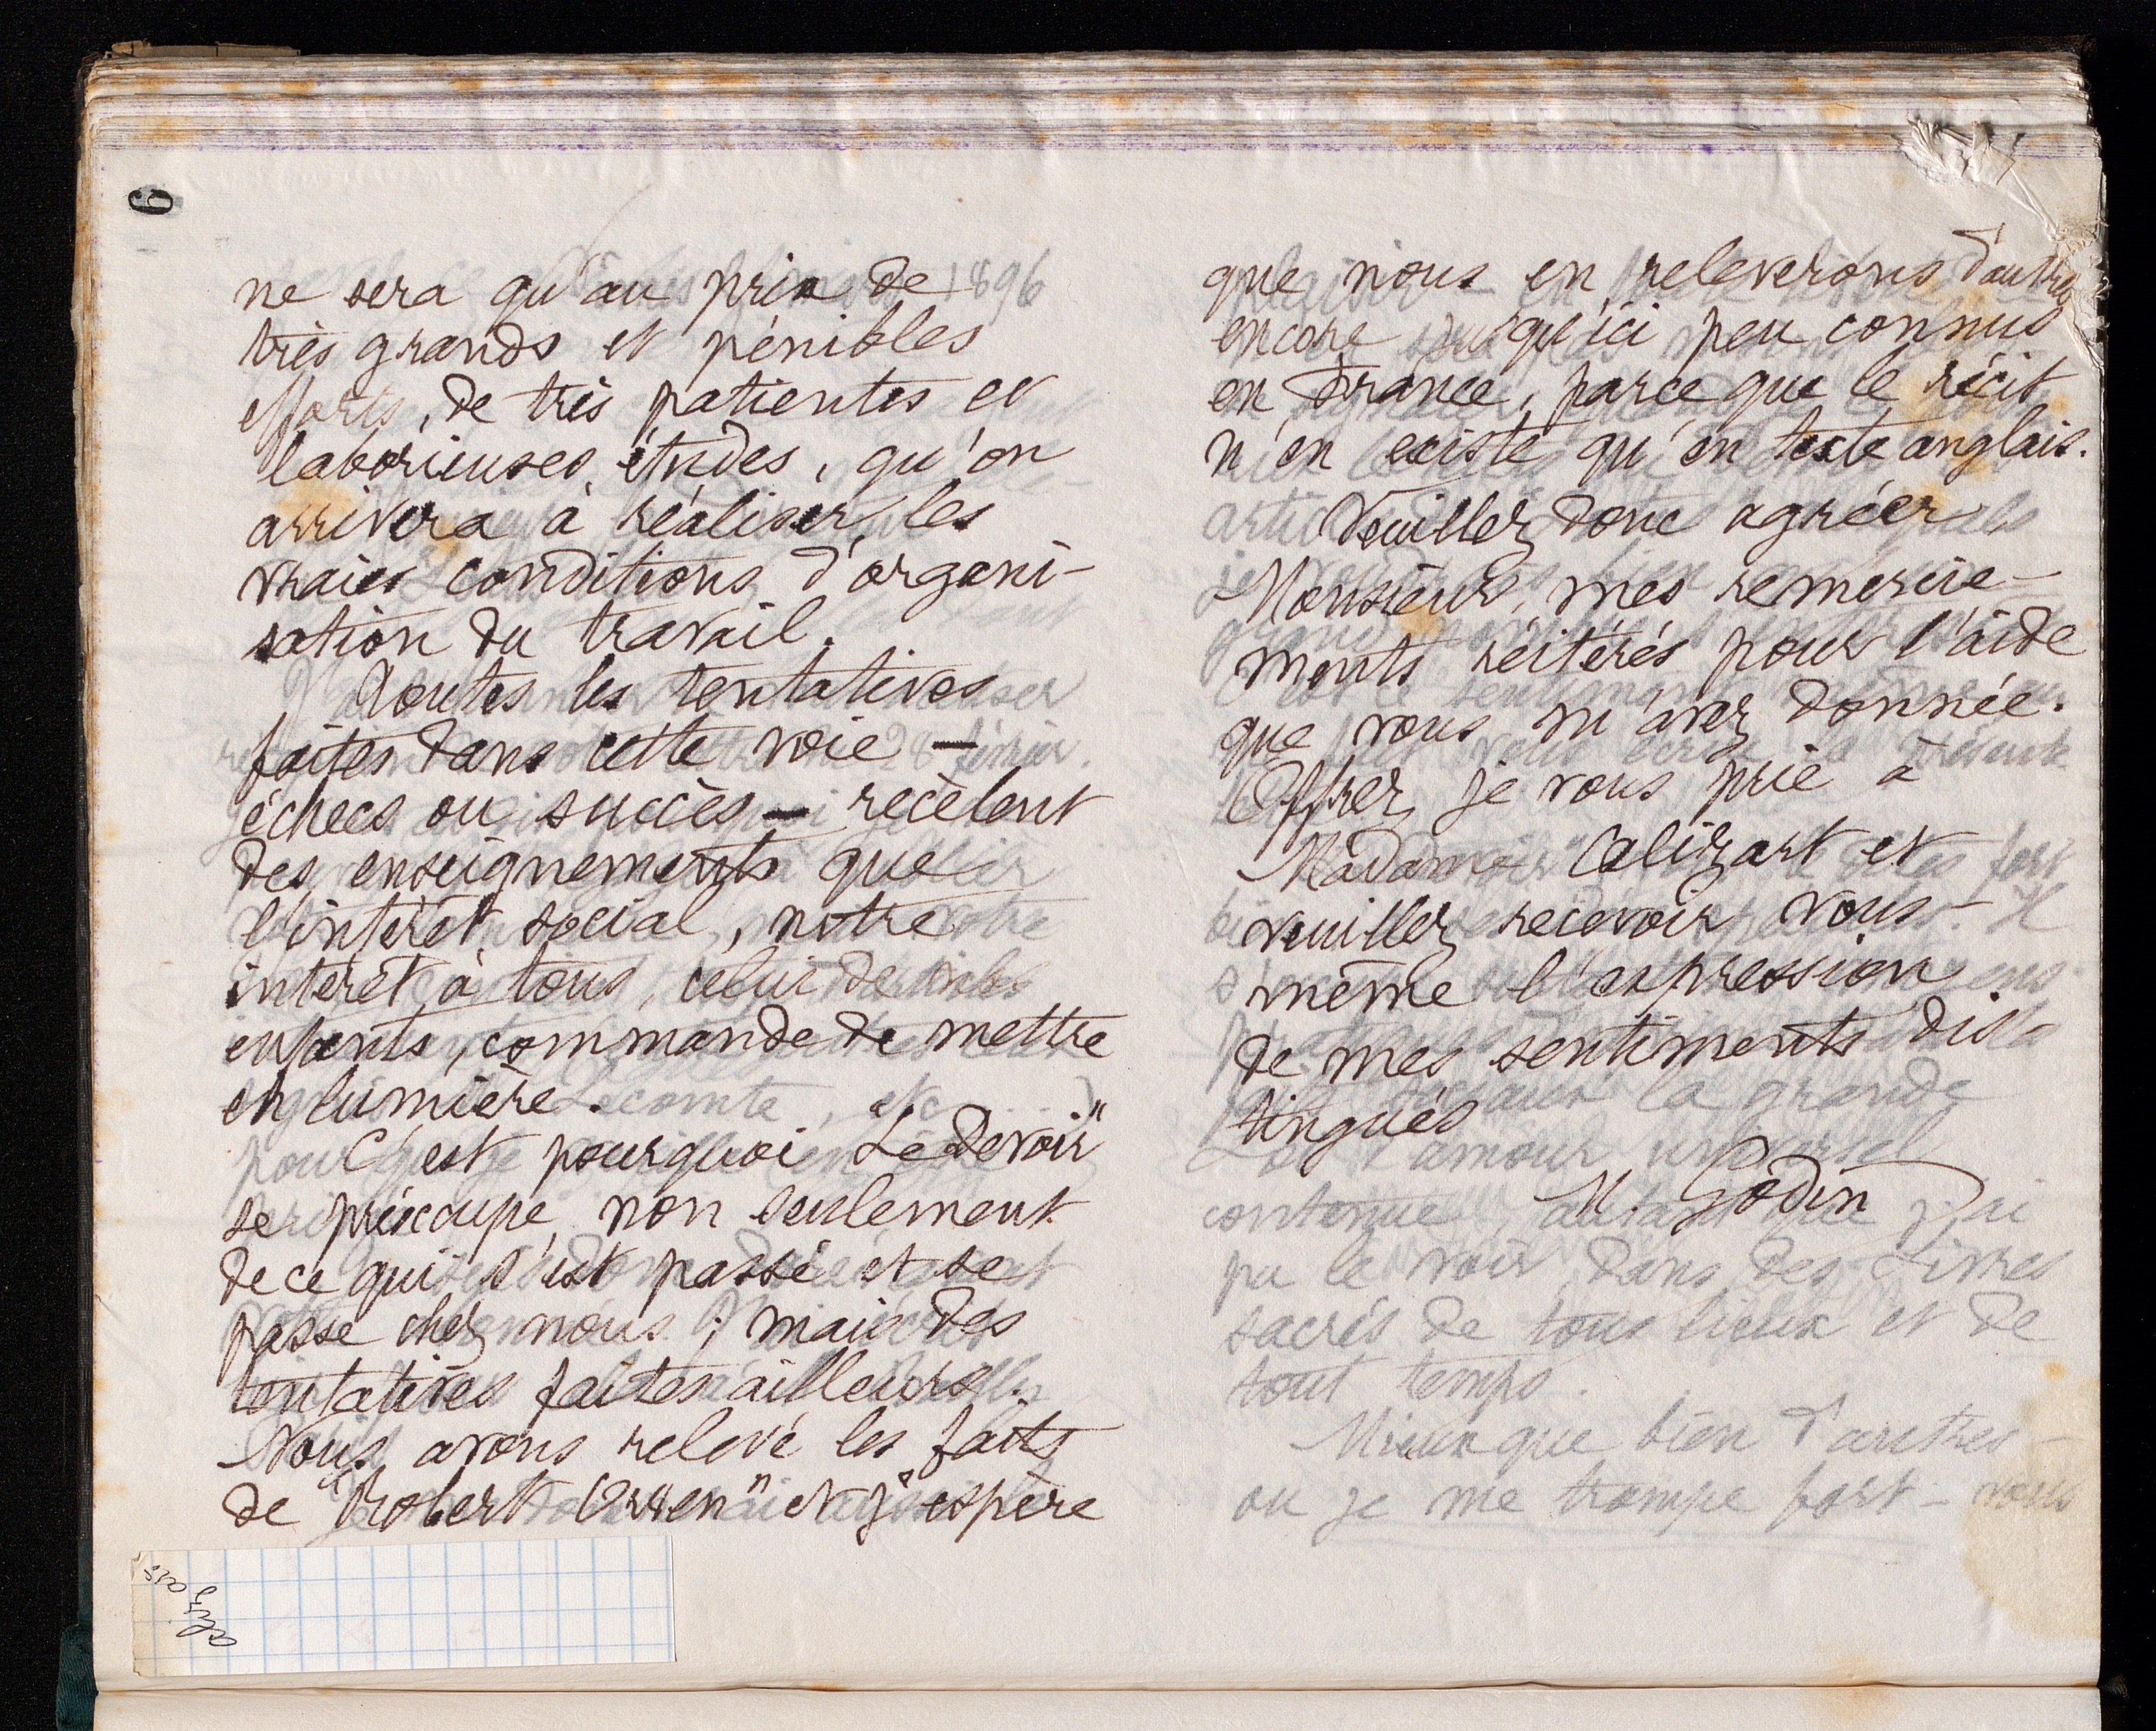 6
ne sera qu'au prix de
très grands et pénibles
efforts, de très patientes et
laborieuses études, qu'on
arrivera à réaliser les
vraies conditions d'organi-
sation du travail.
Toutes les tentatives
faites dans cette voie —
échecs ou succès — recèlent
des enseignements que
l'intérêt social, notre
intérêt à tous, celui de nos
enfants, commande de mettre
en lumière.
C'est pourquoi "Le Devoir"
se préoccupe, non seulement
de ce qui s'est passé et se
passe chez nous ; mais des
tentatives faites ailleurs.
Nous avons relevé les faits
de "Robert Owen" et j'espère
alizart
que nous en releverons d'autres
encore jusqu'ici peu connus
en France, parce que le récit
n'en existe qu'en texte anglais.
Veuillez donc agréer
Monsieur, mes remercie-
ments réitérés pour l'aide
que vous m'avez donnée.
Offrez je vous prie à
Madame Calizart et
veuillez recevoir vous-
même l'expression
de mes sentiments dis-
tingués
M. Godin